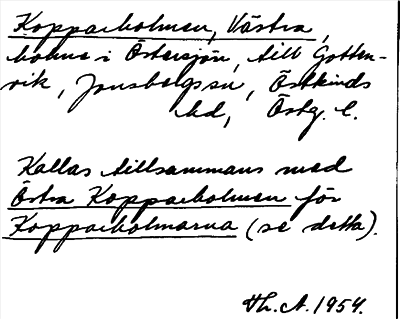 Kopparholmen, Västra,
holme i Östersjön, till Gotten-
vik, Jonsbergs sn, Östkinds
hd, Östg. l.
Kallas tillsammans med
Östra Kopparholmen för
Kopparholmarna (se detta).
Th. A. 1954.